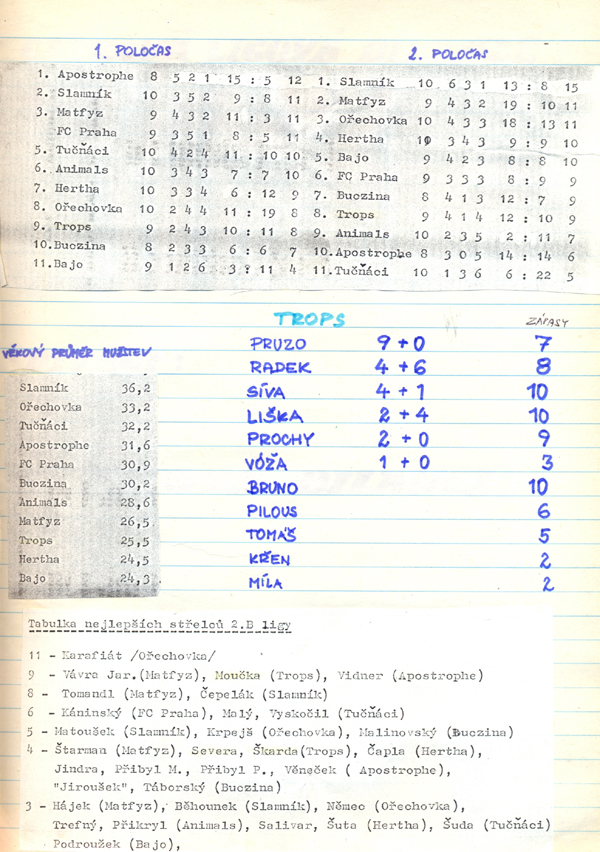 1. POLOČAS
1. Apostrophe 8 5 2 1 15 : 5 12
2. Slamník 10 3 5 2 9 : 8 11
3. Matfyz 9 4 3 2 11 : 3 11
FC Praha 9 3 5 1 8 : 5 11
5. Tučňáci 10 4 2 4 11 : 10 10
6. Animals 10 3 4 3 7 : 7 10
7. Hertha 10 3 3 4 6 : 12 9
8. Ořechovka 10 2 4 4 11 : 19 8
9. Trops 9 2 4 3 10 : 11 8
10.Buczina 8 2 3 3 6 : 6 7
11.Bajo 9 1 2 6 3 : 11 4
2. POLOČAS
1. Slamník 10 6 3 1 13 : 8 15
2. Matfyz 9 4 3 2 19 : 10 11
3. Ořechovka 10 4 3 3 18 : 13 11
4. Hertha 10 3 4 3 9 : 9 10
5. Bajo 9 4 2 3 8 : 8 10
6. FC Praha 9 3 3 3 8 : 9 9
7. Buczina 8 4 1 3 12 : 7 9
8. Trops 9 4 1 4 12 : 10 9
9. Animals 10 2 3 5 2 : 11 7
10.Apostrophe 8 3 0 5 14 : 14 6
11.Tučňáci 10 1 3 6 6 : 22 5
VĚKOVÝ PRŮMĚR MUŽSTEV
Slamník 36,2
Ořechovka 33,2
Tučňáci 32,2
Apostrophe 31,6
FC Praha 30,9
Buczina 30,2
Animals 28,6
Matfyz 26,5
Trops 25,5
Hertha 24,5
Bajo 24,3
TROPS ZÁPASY
PRUZO 9 + 0 7
RADEK 4 + 6 8
SÍVA 4 + 1 10
LIŠKA 2 + 4 10
PROCHY 2 + 0 9
VÓŽA 1 + 0 3
BRUNO 10
PILOUS 6
TOMÁŠ 5
KŘEN 2
MÍLA 2
Tabulka nejlepších střelců 2.B ligy
11 - Karafiát /Ořechovka/
9 - Vávra Jar.(Matfyz), Moučka (Trops), Vidner (Apostrophe)
8 - Tomandl (Matfyz), Čepelák (Slamník)
6 - Káninský (FC Praha), Malý, Vyskočil (Tučňáci)
5 - Matoušek (Slamník), Krpejš (Ořechovka), Malinovský (Buczina)
4 - Štarman (Matfyz), Severa, Škarda(Trops), Čapla (Hertha),
Jindra, Přibyl M., Přibyl P., Věneček ( Apostrophe),
"Jiroušek", Táborský (Buczina)
3 - Hájek (Matfyz), Běhounek (Slamník), Němec (Ořechovka),
Trefný, Přikryl (Animals), Salivar, Šuta (Hertha), Šuda (Tučňáci)
Podroužek (Bajo),